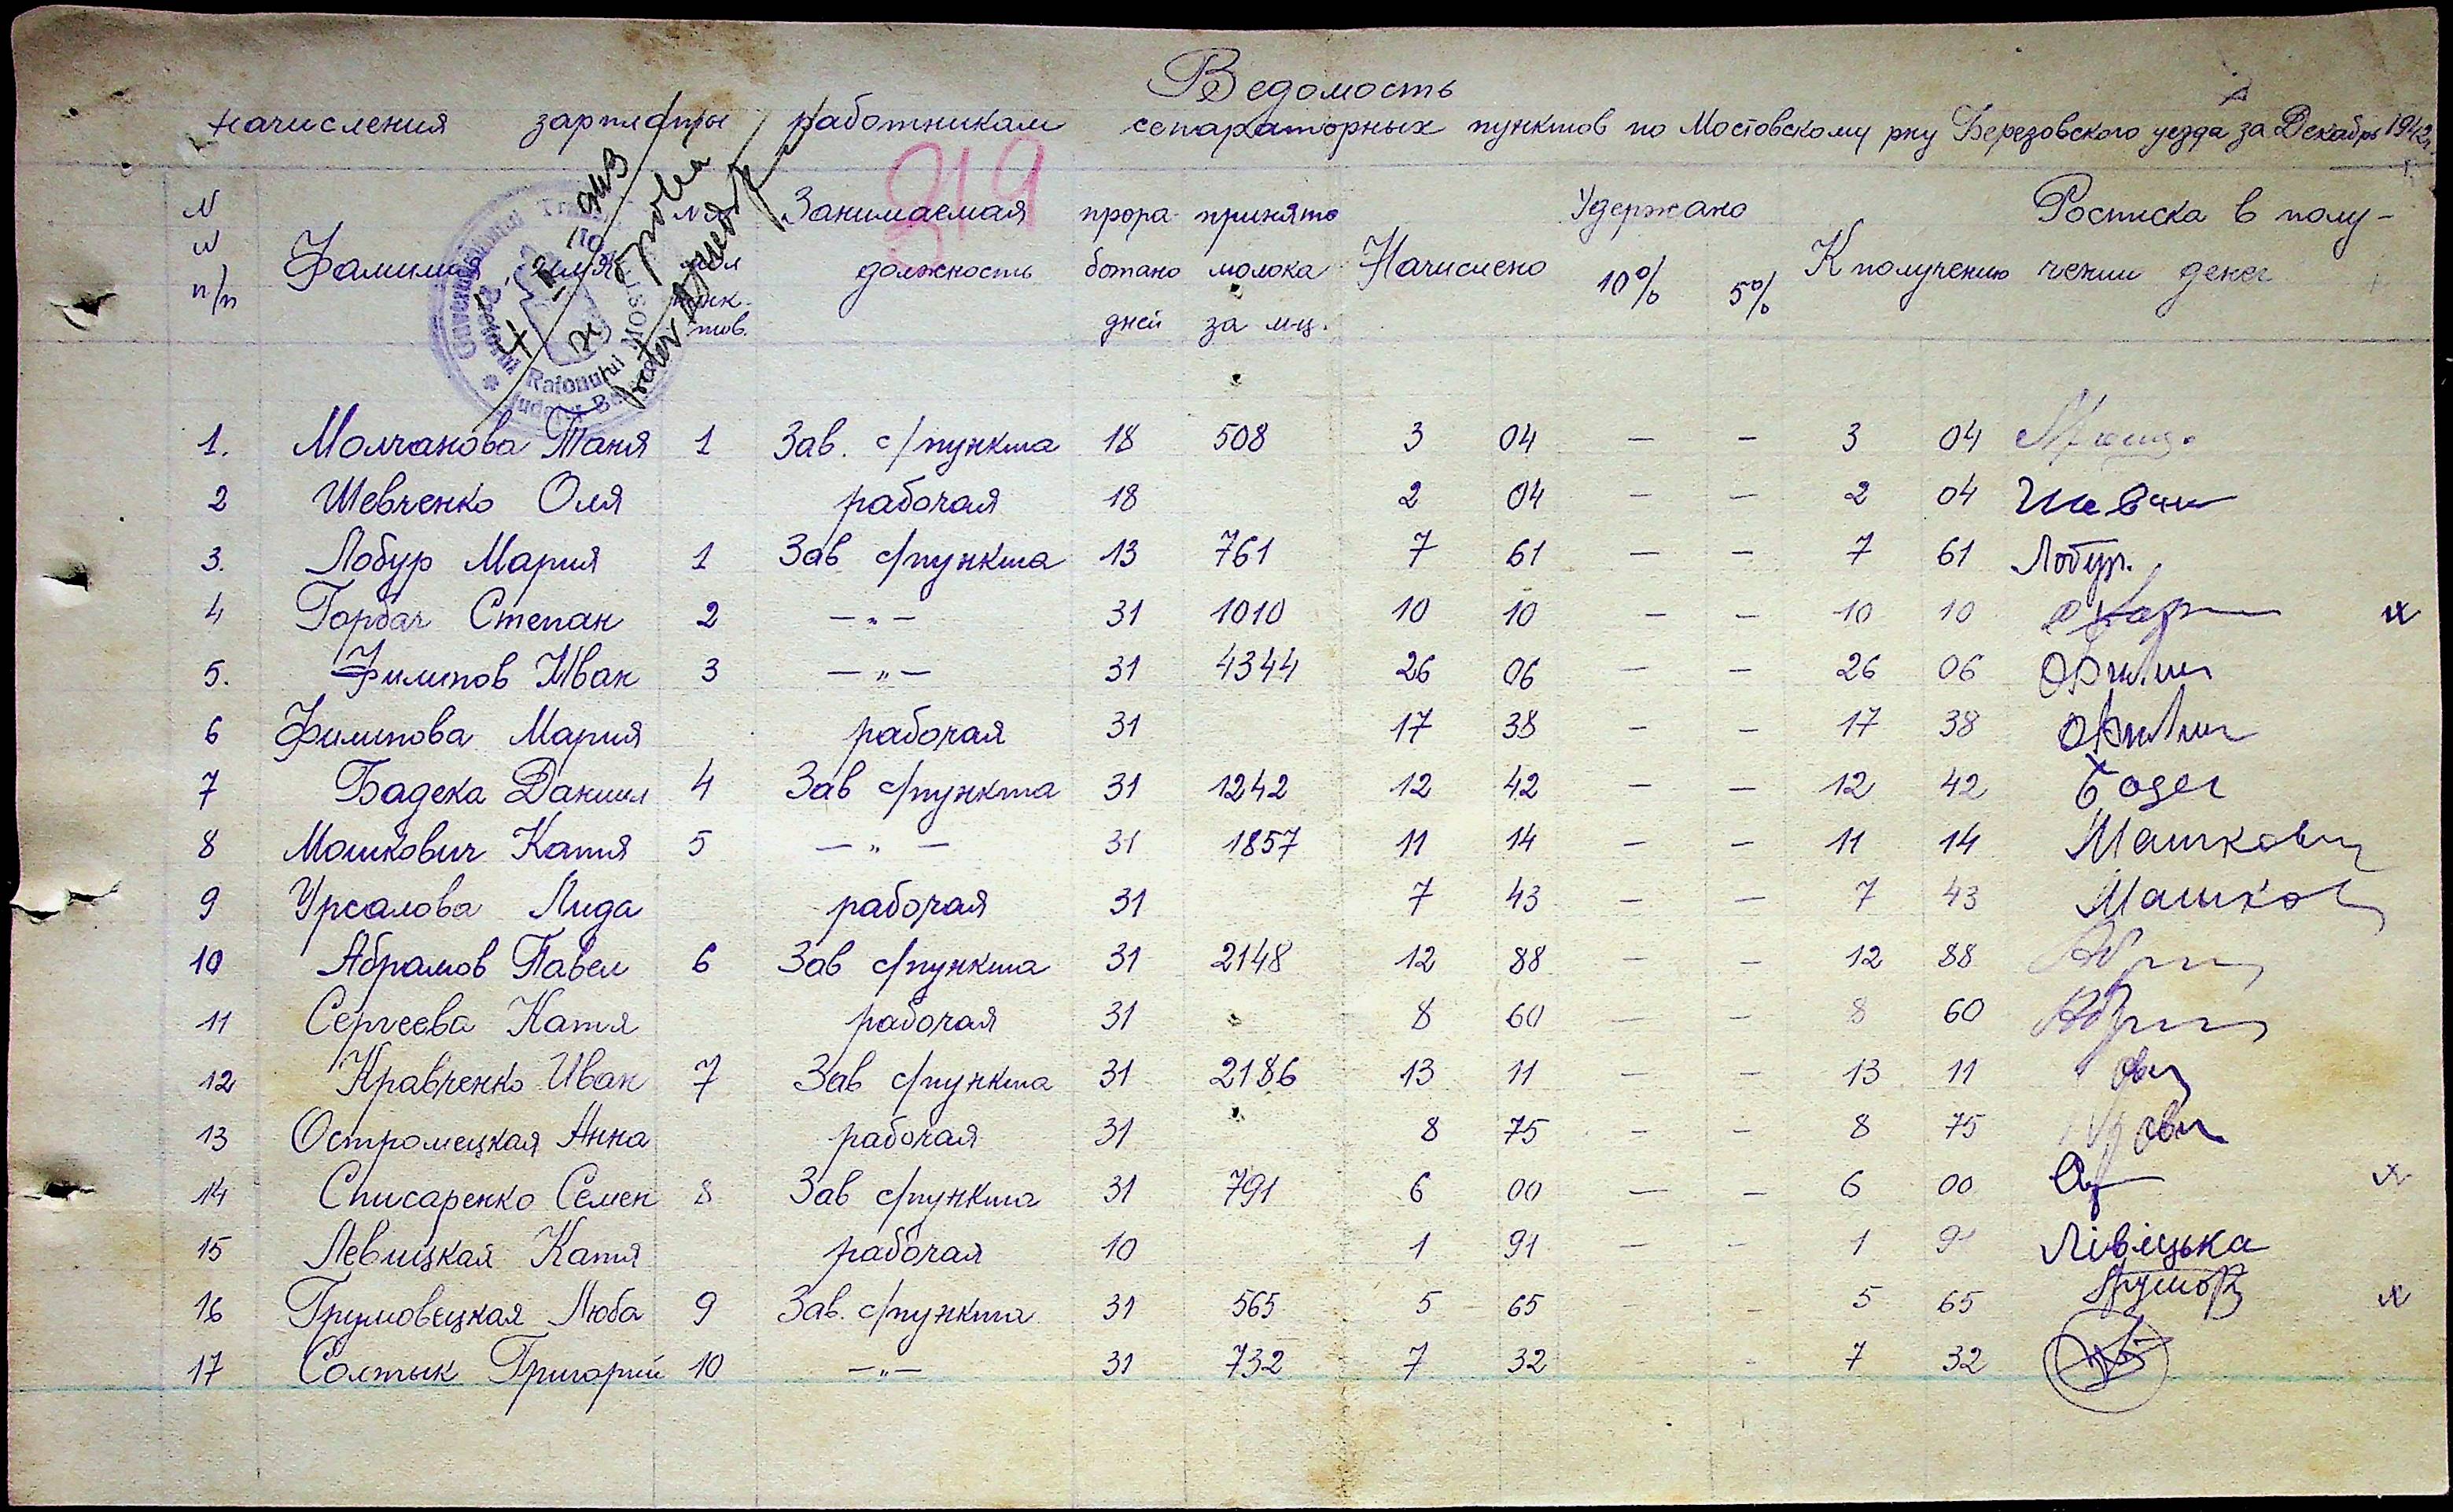 Ведомость
начисления зарплаты работникам сепараторных пунктов по Мостовскому р-ну Березовского уезда за Декабрь 1942 г.
319
N N п/п Фамилия, имя NN мол пунк- тов. Занимаемая должность прора- ботано дней принято молока за м-ц. Начислено Удержано 10% 5% К получению Росписка в полу- чении денег
Raionului
1. Молчанова Таня 1 Зав. с/пункта 18 508 3 04 — — 3 04
2 Шевченко Оля рабочая 18 2 04 — — 2 04 Шевчен
3. Лобур Мария 1 Зав с/пункта 13 761 7 61 — — 7 61 Лобур.
4 Горбач Степан 2 —"— 31 1010 10 10 — — 10 10 x
5. Филипов Иван 3 —"— 31 4344 26 06 — — 26 06 Филип
6 Филипова Мария рабочая 31 17 38 — — 17 38 Филип
7 Бадека Даниил 4 Зав с/пункта 31 1242 12 42 — — 12 42 Бадек
8 Мошкович Катя 5 —"— 31 1857 11 14 — — 11 14 Машкович
9 Урсалова Лида рабочая 31 7 43 — — 7 43 Машков
10 Абрамов Павел 6 Зав с/пункта 31 2148 12 88 — — 12 88
11 Сергеева Катя рабочая 31 8 60 — — 8 60
12 Кравченко Иван 7 Зав с/пункта 31 2186 13 11 — — 13 11
13 Остромецкая Анна рабочая 31 8 75 — — 8 75
14 Списаренко Семен 8 Зав с/пункта 31 791 6 00 — — 6 00 x
15 Левицкая Катя рабочая 10 1 91 — — 1 91 Лівіцька
16 Грумовецкая Люба 9 Зав. с/пункта 31 565 5 65 — — 5 65 Грумов x
17 Солтык Григорий 10 —"— 31 732 7 32 - 7 32